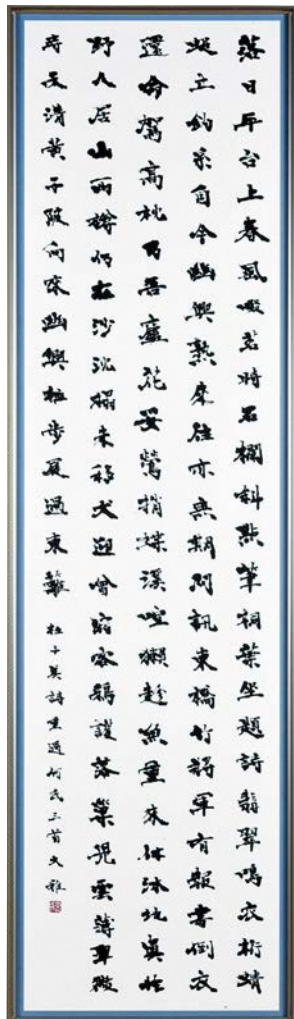 落日平台上春風啜茗時石欄斜點筆桐葉坐題詩翡翠鳴衣桁蜻
蜓立釣絲自今幽興熟來往亦無期問訊東橋竹將軍有報書倒衣
還命駕高枕乃吾廬花妥鶯捎蝶溪喧獺趁魚重來休沐地真作
野人居山雨樽仍在沙沉榻未移犬迎曾宿客鴉護落巢兒雲薄翠微
寺天清黃子陂向來幽興極步屣過東籬 杜子美詩重過何氏三首文雅